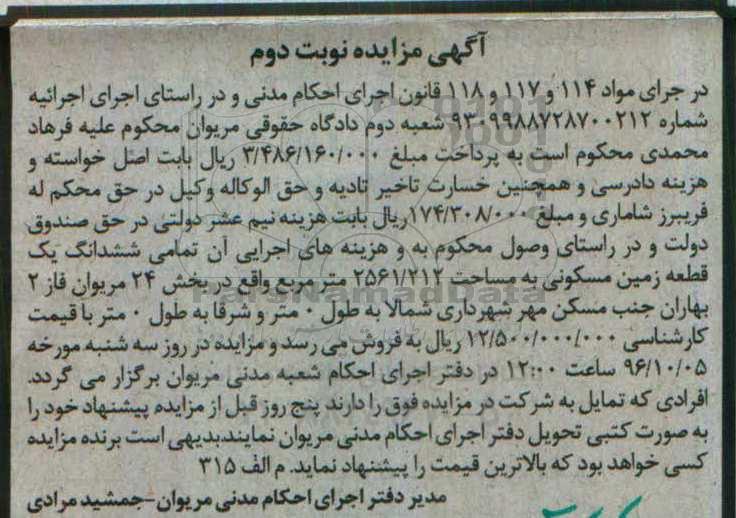 آگهی مزایده نوبت دوم
در جرای مواد ۱۱۴ و ۱۱۷ و ۱۱۸ قانون اجرای احکام مدنی و در راستای اجرای اجرائیه
شماره ۹۳۰۹۹۸۸۷۲۸۷۰۰۲۱۲ شعبه دوم دادگاه حقوقی مریوان محکوم علیه فرهاد
محمدی محکوم است به پرداخت مبلغ ۳/۴۸۶/۱۶۰/۰۰۰ ریال بابت اصل خواسته و
هزینه دادرسی و همچنین خسارت تاخیر تادیه و حق الوکاله وکیل در حق محکم له
فریبرز شاماری و مبلغ ۱۷۴/۳۰۸/۰۰۰ریال بابت هزینه نیم عشر دولتی در حق صندوق
دولت و در راستای وصول محکوم به و هزینه های اجرایی آن تمامی ششدانگ یک
قطعه زمین مسکونی به مساحت ۲۵۶۱/۲۱۲ متر مربع واقع در بخش ۲۴ مریوان فاز ۲
بهاران جنب مسکن مهر شهرداری شمالا به طول ۰ متر و شرقا به طول ۰ متر با قیمت
کارشناسی ۱۲/۵۰۰/۰۰۰/۰۰۰ ریال به فروش می رسد و مزایده در روز سه شنبه مورخه
۹۶/۱۰/۰۵ ساعت ۱۲:۰۰ در دفتر اجرای احکام شعبه مدنی مریوان برگزار می گردد.
افرادی که تمایل به شرکت در مزایده فوق را دارند پنج روز قبل از مزایده پیشنهاد خود را
به صورت کتبی تحویل دفتر اجرای احکام مدنی مریوان نمایند.بدیهی است برنده مزایده
کسی خواهد بود که بالاترین قیمت را پیشنهاد نماید. م الف ۳۱۵
مدیر دفتر اجرای احکام مدنی مریوان-جمشید مرادی
ParsNamadData